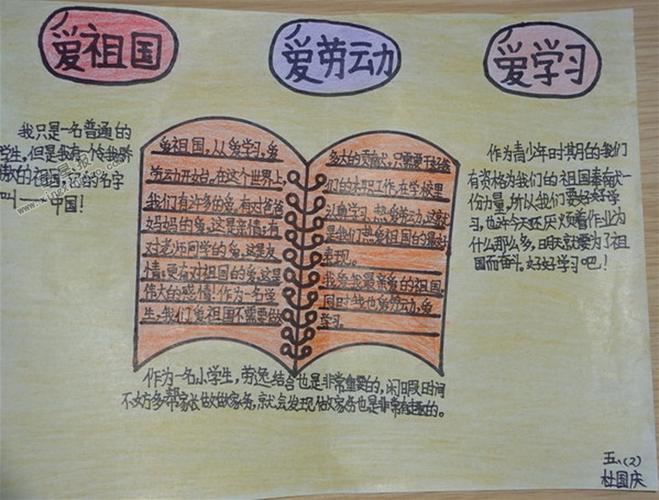 爱祖国
爱劳动
爱学习
我只是一名普通的
学生，但是我有一个令我骄
傲的祖国，它的名字
叫——中国！
爱祖国，从爱学习，爱
劳动开始，在这个世界上，
我们有许多的爱，有对爸爸
妈妈的爱，这是亲情；有
对老师同学的爱，这是友
情；更有对祖国的爱，这是
伟大的感情！作为一名学
生，我们爱祖国不需要做
多大的贡献，只需要干好我
们的本职工作，在学校里
认真学习，热爱劳动，这就
是我们热爱祖国的最好
表现。
我爱我最亲爱的祖国，
同时我也爱劳动，爱
学习。
作为青少年时期的我们
有资格为我们的祖国奉献一
份力量，所以我们要好好学
习，也许今天还厌烦着作业为
什么那么多，明天就要为了祖
国而奋斗。好好学习吧！
作为一名小学生，劳逸结合也是非常重要的，闲暇时间
不妨多帮家长做做家务，就会发现做家务也是非常有趣的。
五、(2)
杜国庆